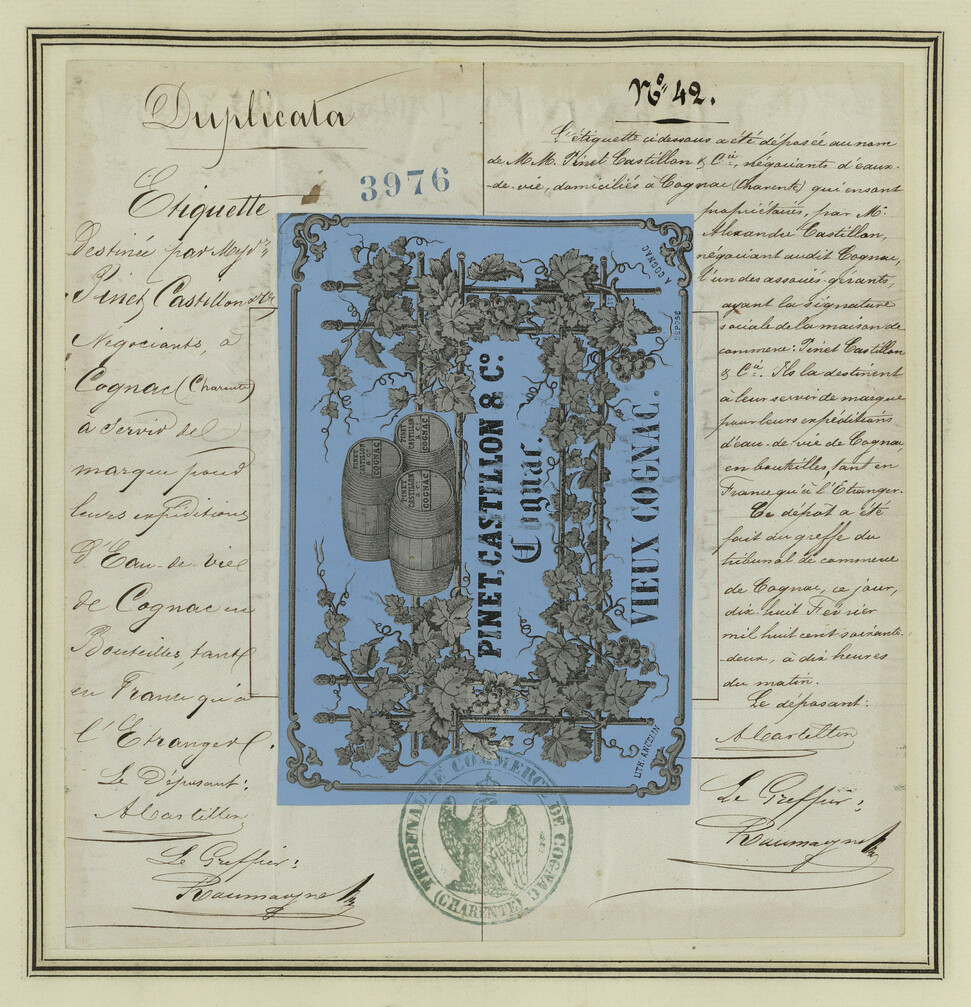 Duplicata
Etiquette
Destinée par Mrs
Pinet, Castillon & Cie
Négociants, à
Cognac (Charente)
à servir de
marque pour
leurs expéditions
d'Eau-de-vie
de Cognac en
Bouteilles, tant
en France qu'à
l'Etranger.
Le Déposant:
A Castillon
Le Greffier:
3976
No 42.
L'étiquette ci dessous a été déposée au nom
de M.M. Pinet Castillon & Cie, négociants d'eaux-
-de-vie, domiciliés à Cognac (Charente) qui en sont
propriétaires, par Mr
Alexandre Castillon,
négociant audit Cognac,
l'un des associés-gérants,
ayant la signature
sociale de la maison de
commerce: Pinet Castillon
& Cie. Ils la destinent
à leur servir de marque
pour leurs expéditions
d'eau-de-vie de Cognac,
en bouteilles, tant en
France qu'à l'Etranger.
Ce dépôt a été
fait au greffe du
tribunal de commerce
de Cognac, ce jour,
dix-huit Février
mil huit cent soixante-
deux, à dix heures
du matin.
Le déposant:
A Castillon
Le Greffier:
PINET
CASTILLON
& Cie
COGNAC
PINET
CASTILLON
& Cie
COGNAC
PINET
CASTILLON
& Cie
COGNAC
PINET, CASTILLON & Co.
Cognac.
VIEUX COGNAC.
LITH. ANCELIN
DÉPOSÉ
A COGNAC
TRIBUNAL DE COMMERCE DE COGNAC
(CHARENTE)